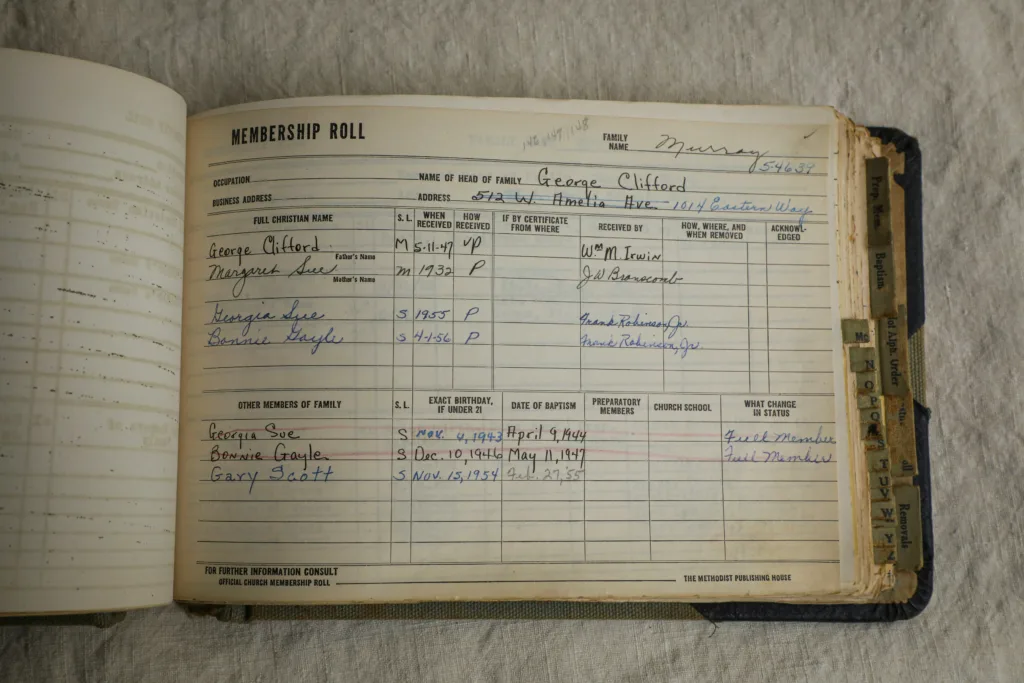 MEMBERSHIP ROLL
FAMILY NAME Murray
OCCUPATION NAME OF HEAD OF FAMILY George Clifford
BUSINESS ADDRESS ADDRESS 512 W. Amelia Ave. 1014 Eastern Way
FULL CHRISTIAN NAME S. L. WHEN RECEIVED HOW RECEIVED IF BY CERTIFICATE FROM WHERE RECEIVED BY HOW, WHERE, AND WHEN REMOVED ACKNOWL-EDGED
George Clifford M 5-11-47 VP Wm M. Irwin
Father's Name
Margaret Sue M 1932 P J.W. Branscomb
Mother's Name
Georgia Sue S 1955 P Frank Robinson, Jr.
Bonnie Gayle S 4-1-56 P Frank Robinson, Jr.
OTHER MEMBERS OF FAMILY S. L. EXACT BIRTHDAY, IF UNDER 21 DATE OF BAPTISM PREPARATORY MEMBERS CHURCH SCHOOL WHAT CHANGE IN STATUS
Georgia Sue S Nov. 4, 1943 April 9, 1944 Full Member
Bonnie Gayle S Dec. 10, 1946 May 11, 1947 Full Member
Gary Scott S Nov. 15, 1954 Feb. 27, '55
FOR FURTHER INFORMATION CONSULT
OFFICIAL CHURCH MEMBERSHIP ROLL THE METHODIST PUBLISHING HOUSE
Prep. Mem.
Baptism
Alph. Order
Mc
N
O
P
Q
T
U
V
W
Y
Z
Removals